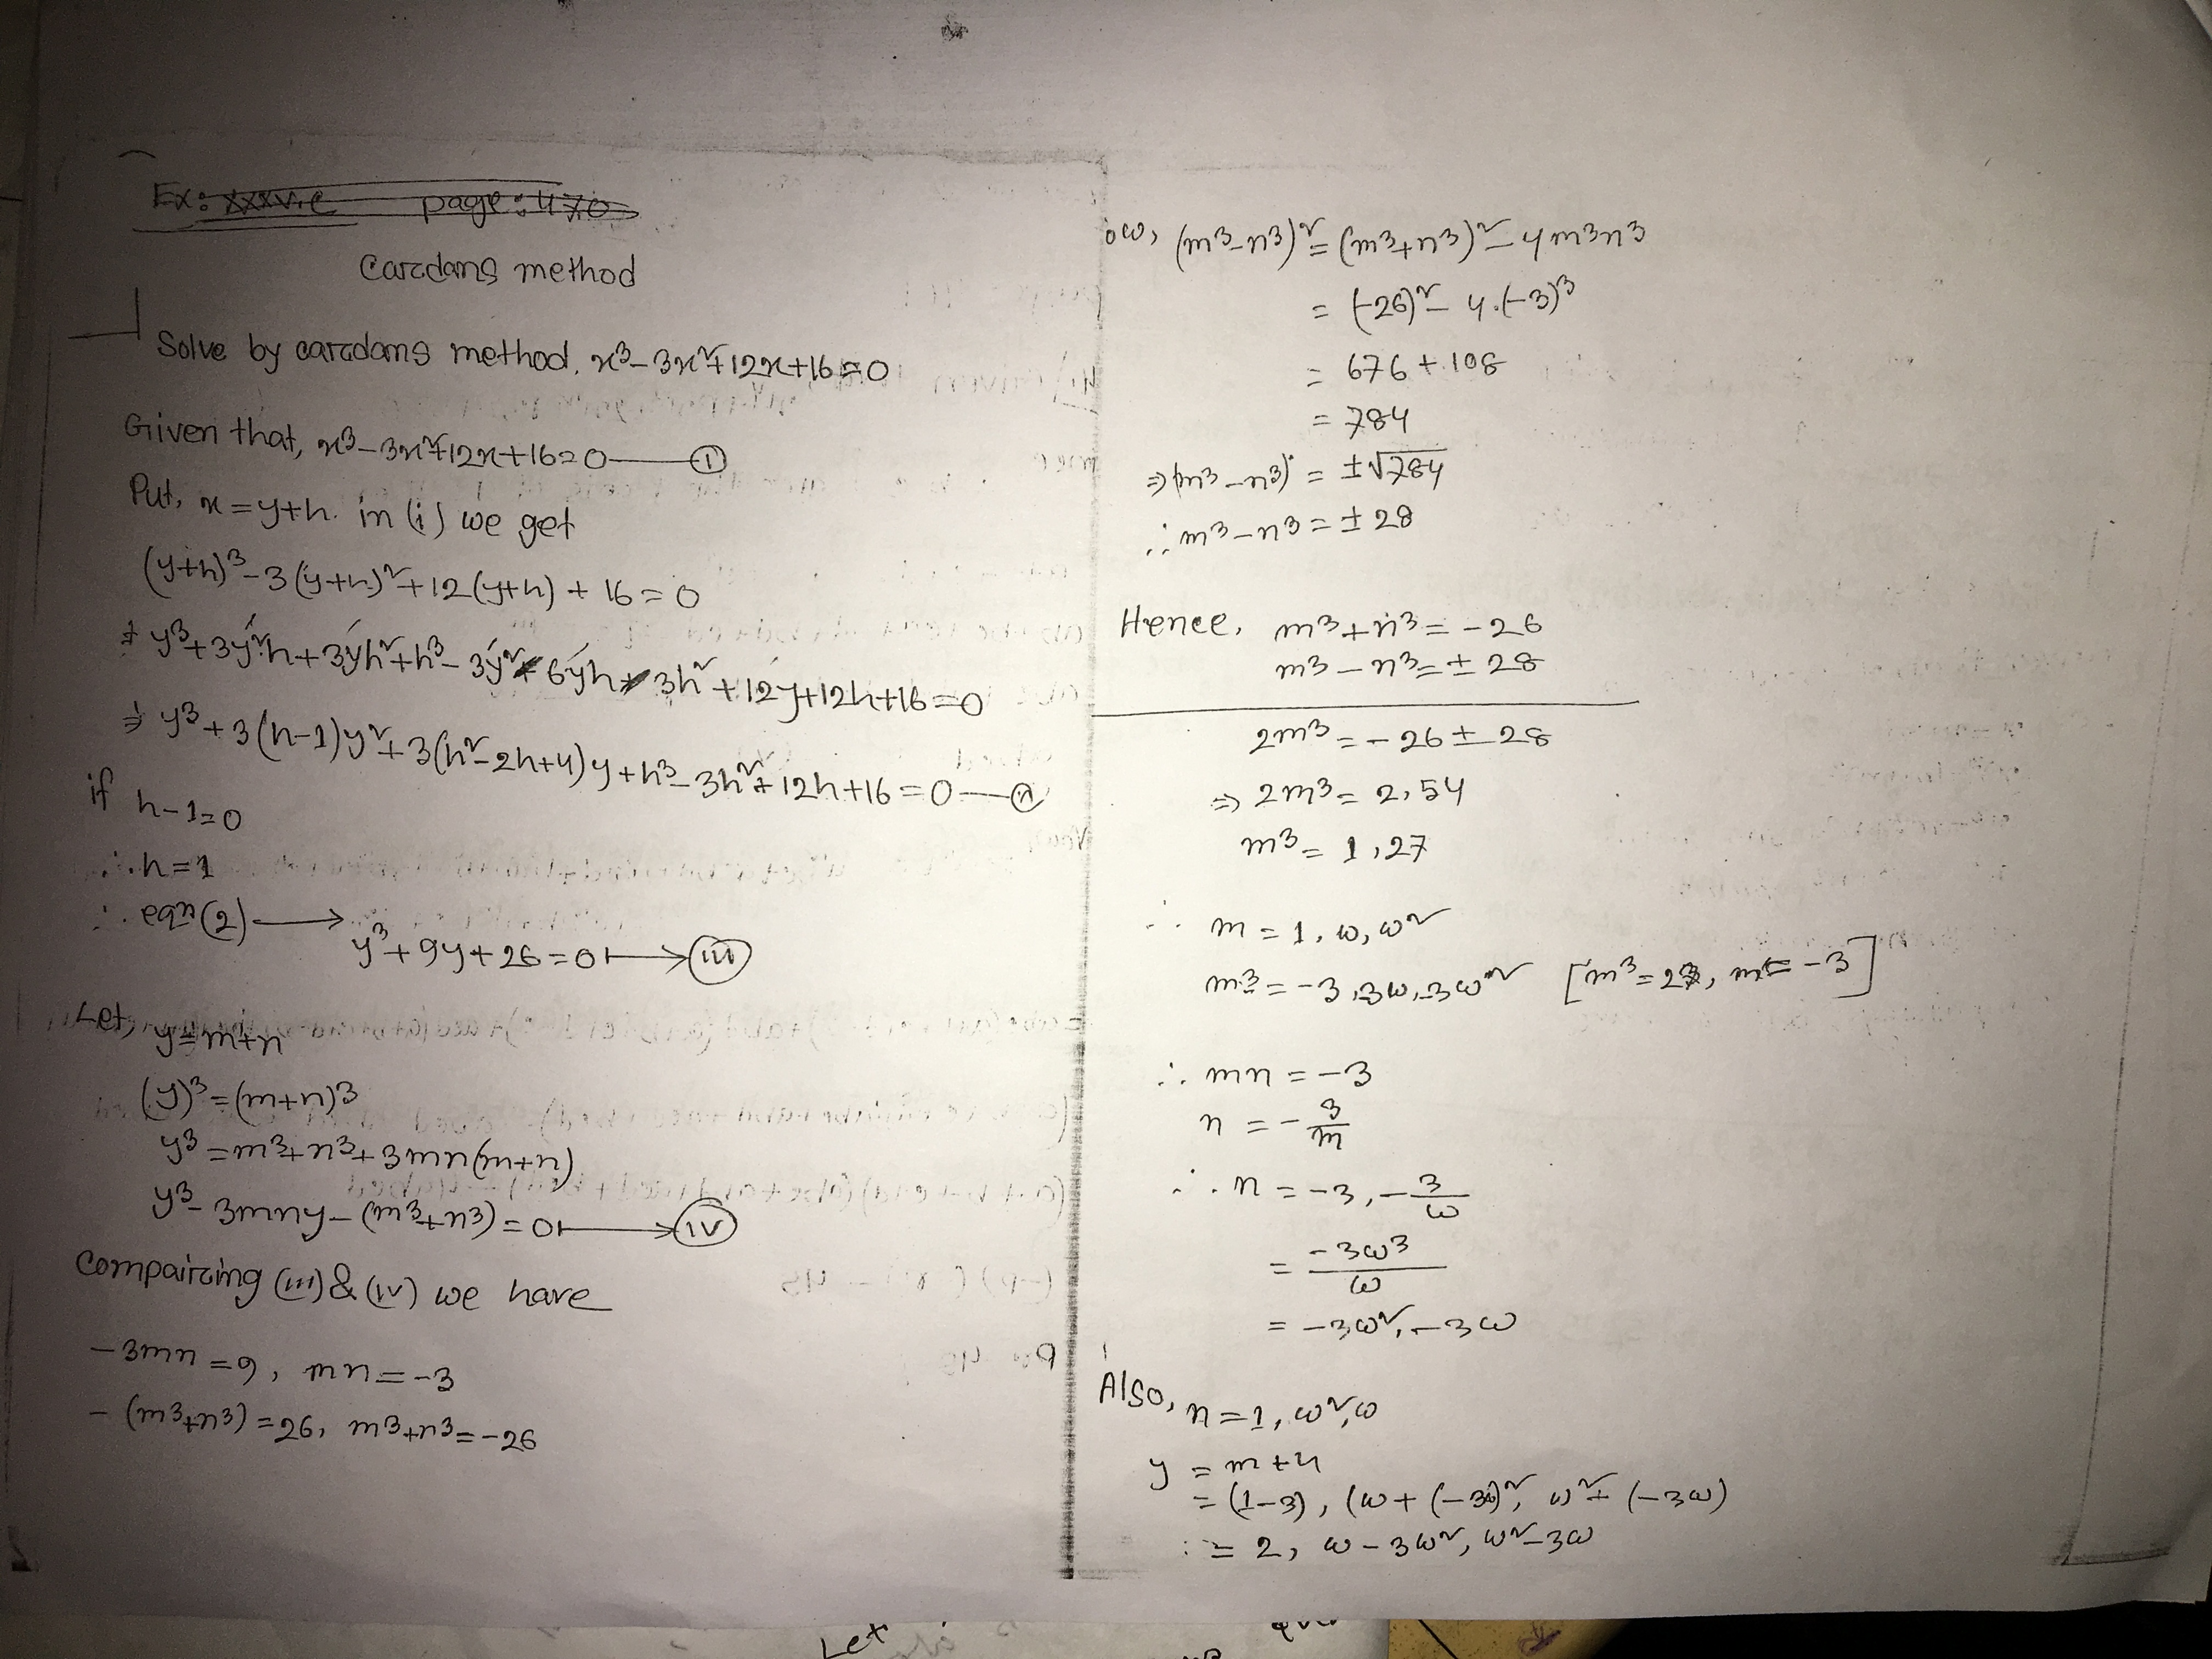 Ex: xxxv.c page: 470
Carcdans method
Solve by carcdams method. x³-3x²+12x+16=0
Given that, x³-3x²+12x+16=0 — ①
Put, x=y+h. in (i) we get
(y+h)³-3(y+h)²+12(y+h)+16=0
⇒ y³+3y²h+3yh²+h³-3y²-6yh-3h²+12y+12h+16=0
⇒ y³+3(h-1)y²+3(h²-2h+4)y+h³-3h²+12h+16=0 —
if h-1=0
∴ h=1
∴ eqn(2) ⟶ y³+9y+26=0 ⟼ (iii)
Let, y=m+n
(y)³=(m+n)3
y3=m3+n3+3mn(m+n)
y3-3mny-(m3+n3)=0 ⟼ (iv)
Compaircing (iii) & (iv) we have
-3mn=9, mn=-3
-(m3+n3)=26, m3+n3=-26
ow, (m3-n3)²=(m3+n3)²-4m3n3
= (-26)²-4.(-3)3
= 676+108
= 784
⇒ (m3-n3) = ±√784
∴ m3-n3=±28
Hence, m3+n3=-26
m3-n3=±28
2m3=-26±28
⇒ 2m3=2,54
m3=1,27
∴ m=1, ω, ω²
m3=-3,-3ω,-3ω² [m3=27, m=-3]
∴ mn=-3
n=-3/m
∴ n=-3, -3/ω
= -3ω3/ω
= -3ω², -3ω
Also, n=1, ω², ω
y = m+n
= (1-3), (ω+(-3ω)², ω²+(-3ω)
∴ = 2, ω-3ω², ω²-3ω
Let